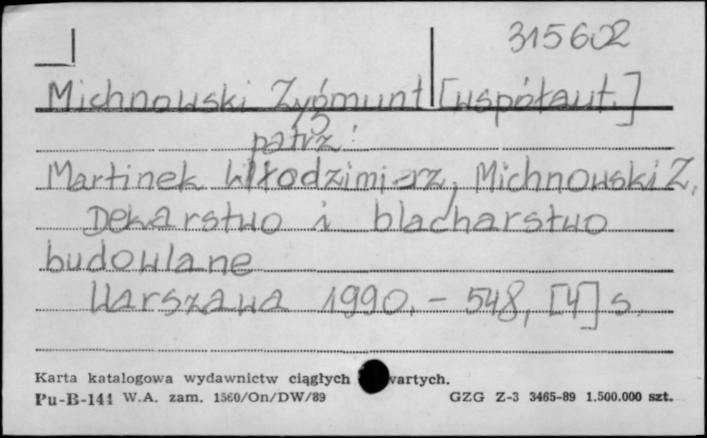 315602
Michnowski Zygmunt [współaut.]
patrz:
Martinek Włodzimierz, Michnowski Z.
Dekarstwo i blacharstwo
budowlane
Warszawa 1990. – 548, [4] s.
Karta katalogowa wydawnictw ciągłych wartych.
Pu-B-141 W.A. zam. 1560/On/DW/89 GZG Z-3 3465-89 1.500.000 szt.